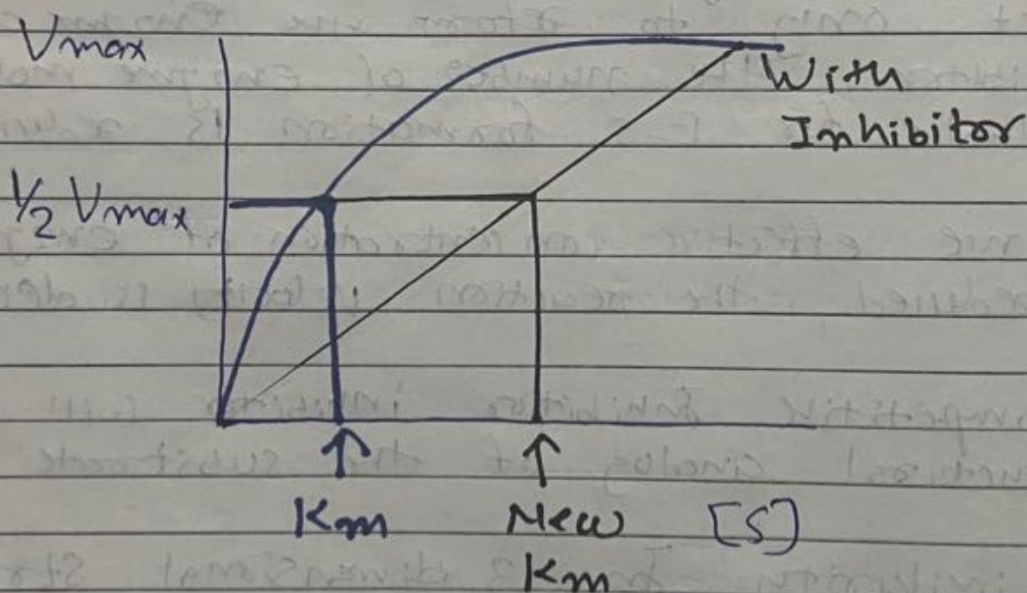 Vmax
With
Inhibitor
1/2 Vmax
Km
New
Km
[S]